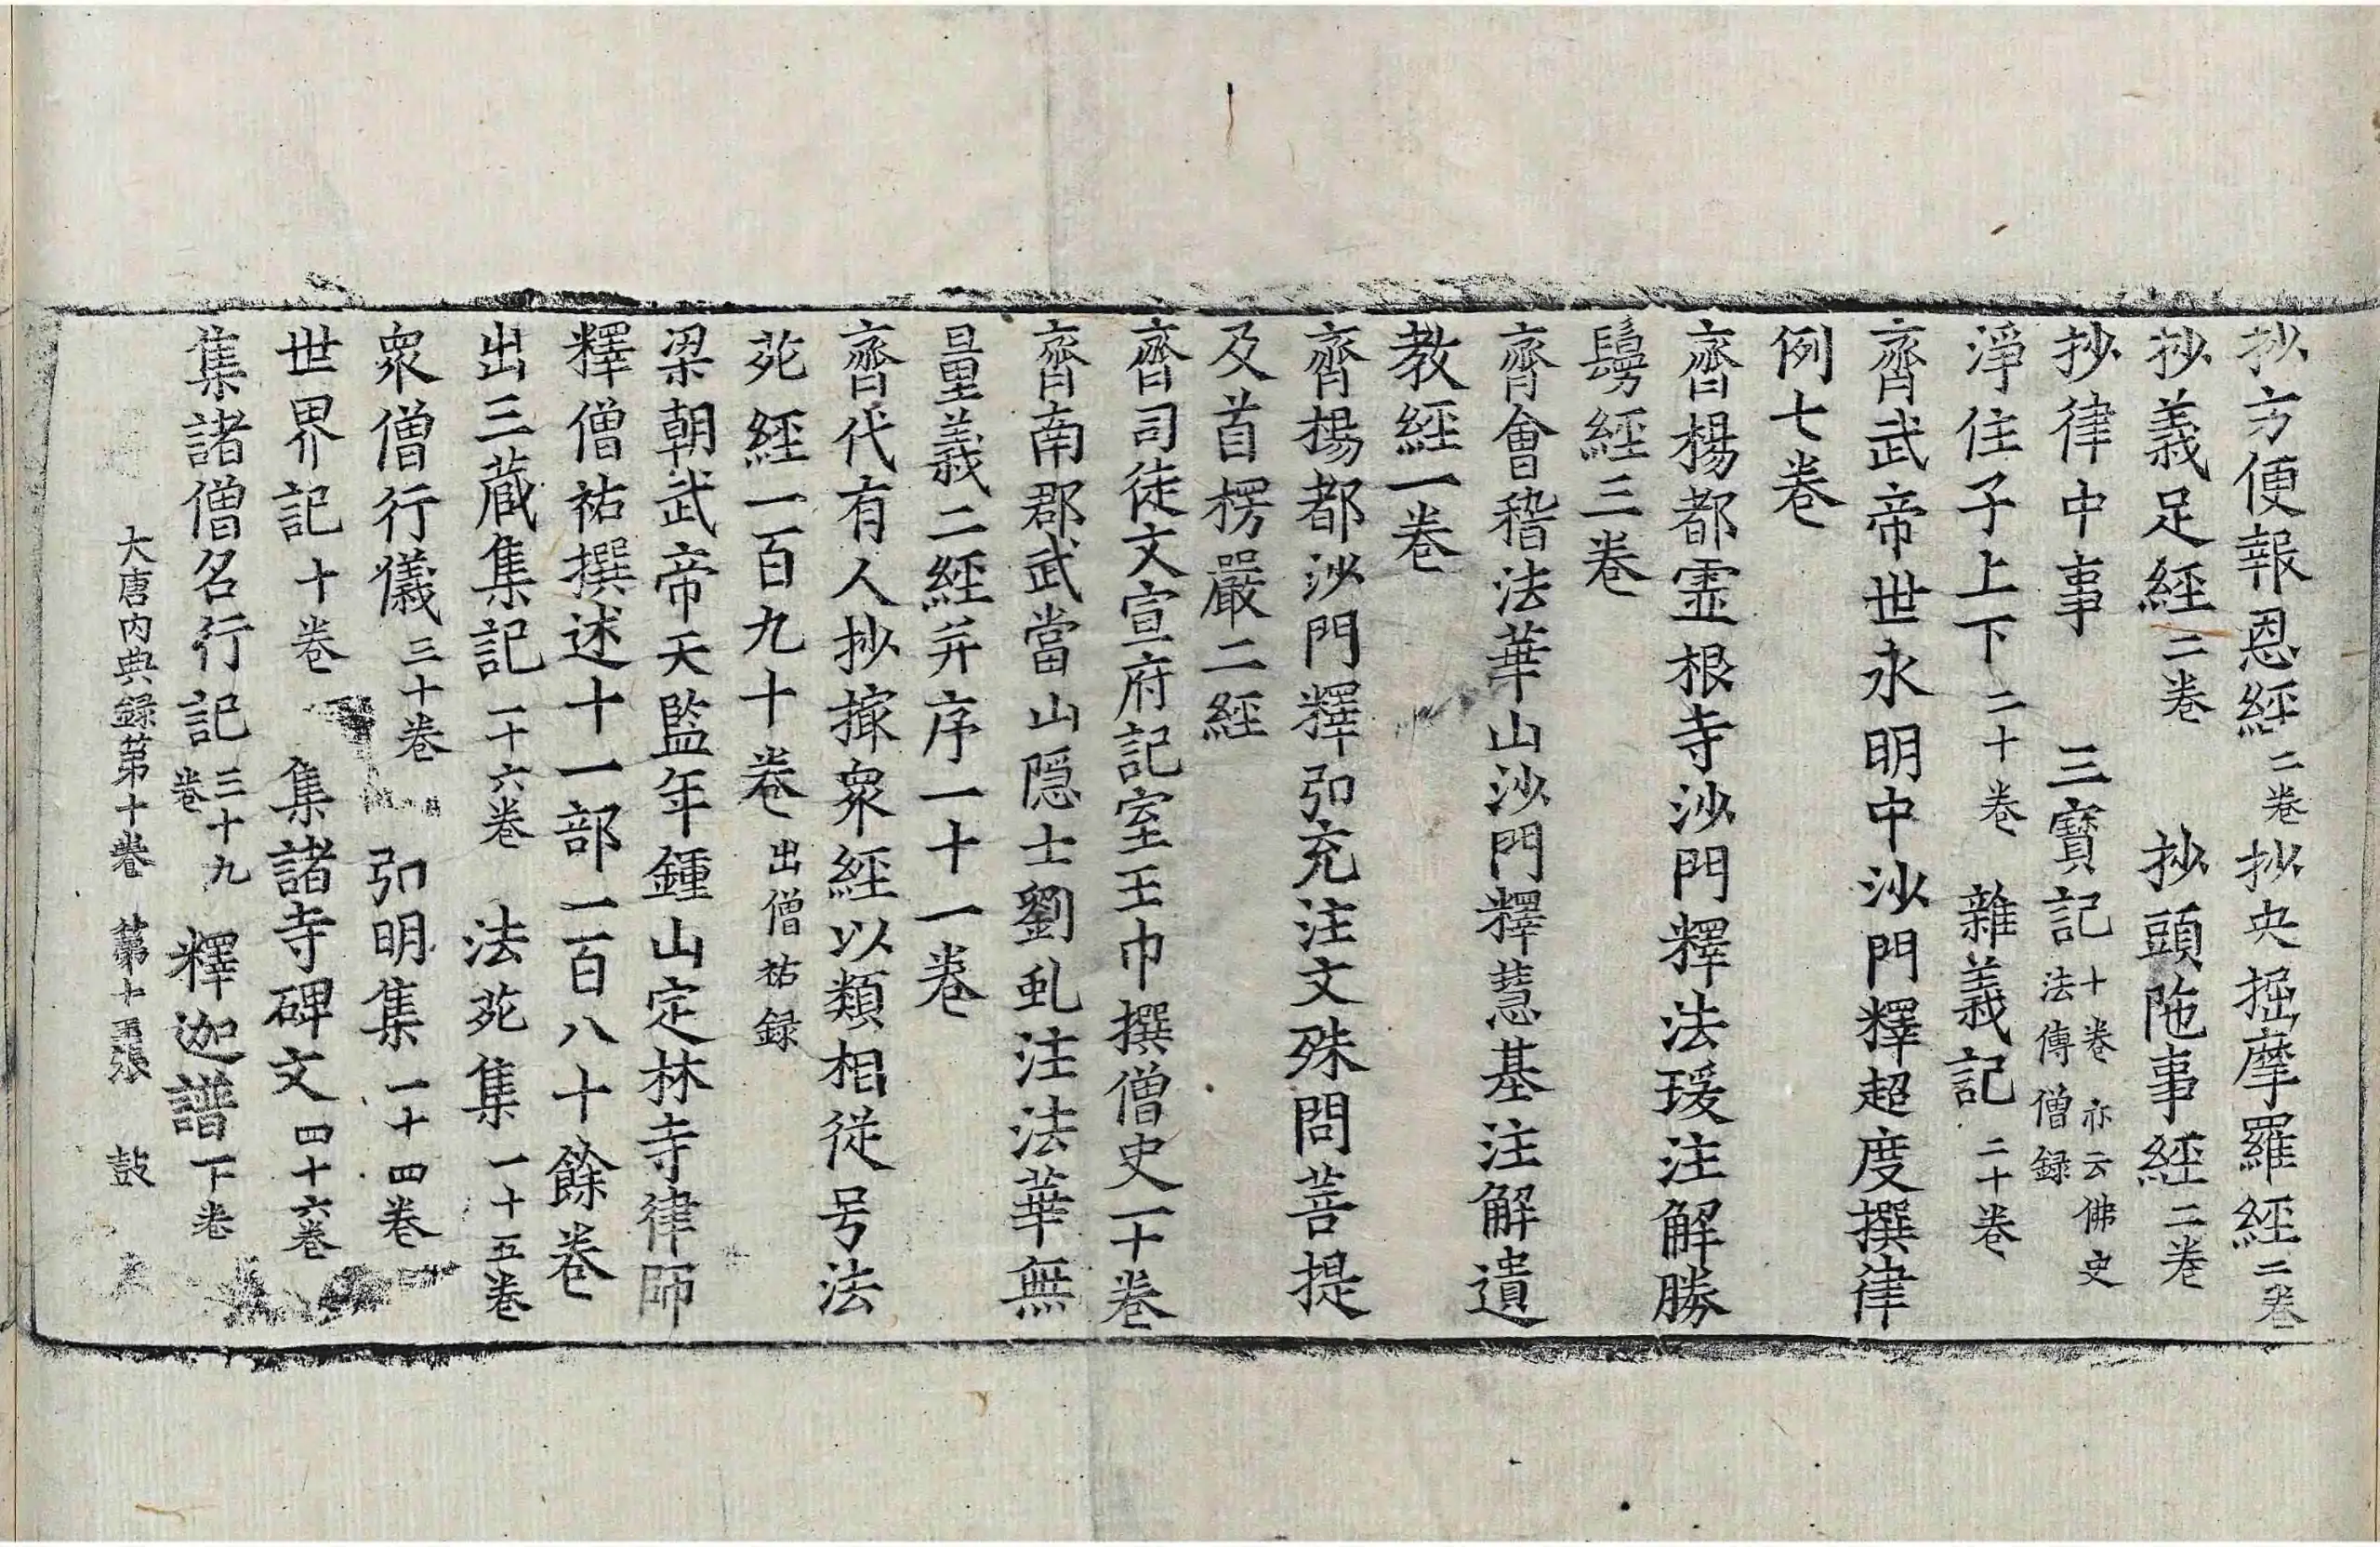 抄方便報恩經二卷抄央掘摩羅經二卷
抄義足經二卷 抄頭陁事經二卷
抄律中事 三寳記十卷亦云佛史法傳僧録
淨住子上下二十卷 雜義記二十卷
齊武帝世永明中沙門釋超度撰律
例七卷
齊楊都霊根寺沙門釋法瑗注解勝
鬘經三卷
齊會稽法華山沙門釋慧基注解遺
教經一卷
齊楊都沙門釋弘充注文殊問菩提
及首楞嚴二經
齊司徒文宣府記室王巾撰僧史一十卷
齊南郡武當山隠士劉虬注法華無
量義二經并序一十一卷
齊代有人抄撮衆經以類相從号法
苑經一百九十卷出僧祐録
梁朝武帝天監年鍾山定林寺律師
釋僧祐撰述十一部二百八十餘卷
出三蔵集記一十六卷 法苑集一十五卷
衆僧行儀三十卷 弘明集一十四卷
世界記十卷 集諸寺碑文四十六卷
集諸僧名行記三十九卷 釋迦譜下卷
大唐内典録第十卷 第十張 鼓